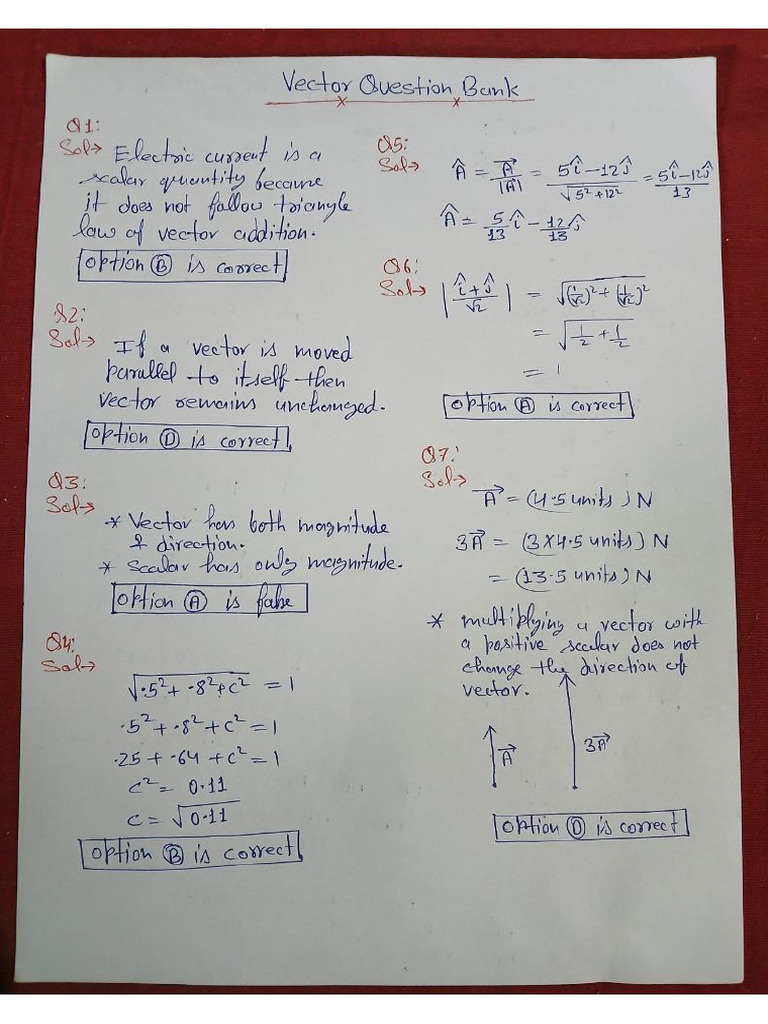 Vector Question Bank
Q1:
Sol→ Electric current is a
scalar quantity because
it does not follow triangle
law of vector addition.
Option Ⓑ is correct
Q2:
Sol→ If a vector is moved
parallel to itself then
vector remains unchanged.
Option Ⓓ is correct
Q3:
Sol→ * Vector has both magnitude
& direction.
* Scalar has only magnitude.
Option Ⓐ is false
Q4:
Sol→
√(.5² + .8² + c²) = 1
.5² + .8² + c² = 1
.25 + .64 + c² = 1
c² = 0.11
c = √0.11
Option Ⓑ is correct
Q5:
Sol→ Â = A⃗/|A⃗| = (5î − 12ĵ)/√(5² + 12²) = (5î − 12ĵ)/13
Â = 5/13 î − 12/13 ĵ
Q6:
Sol→ |(î + ĵ)/√2| = √((1/√2)² + (1/√2)²)
= √(1/2 + 1/2)
= 1
Option Ⓐ is correct
Q7:
Sol→ A⃗ = (4.5 units) N
3A⃗ = (3×4.5 units) N
= (13.5 units) N
* multiplying a vector with
a positive scalar does not
change the direction of
vector.
A⃗ 3A⃗
Option Ⓓ is correct